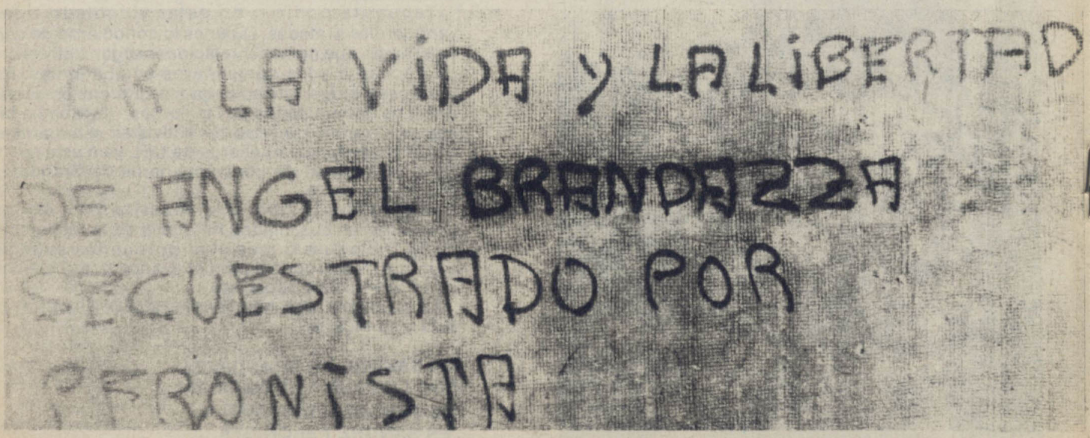 POR LA ViDA y LA LiBERTAD
DE ANGEL BRANDAZZA
SECUESTRADO POR
PERONiSTA